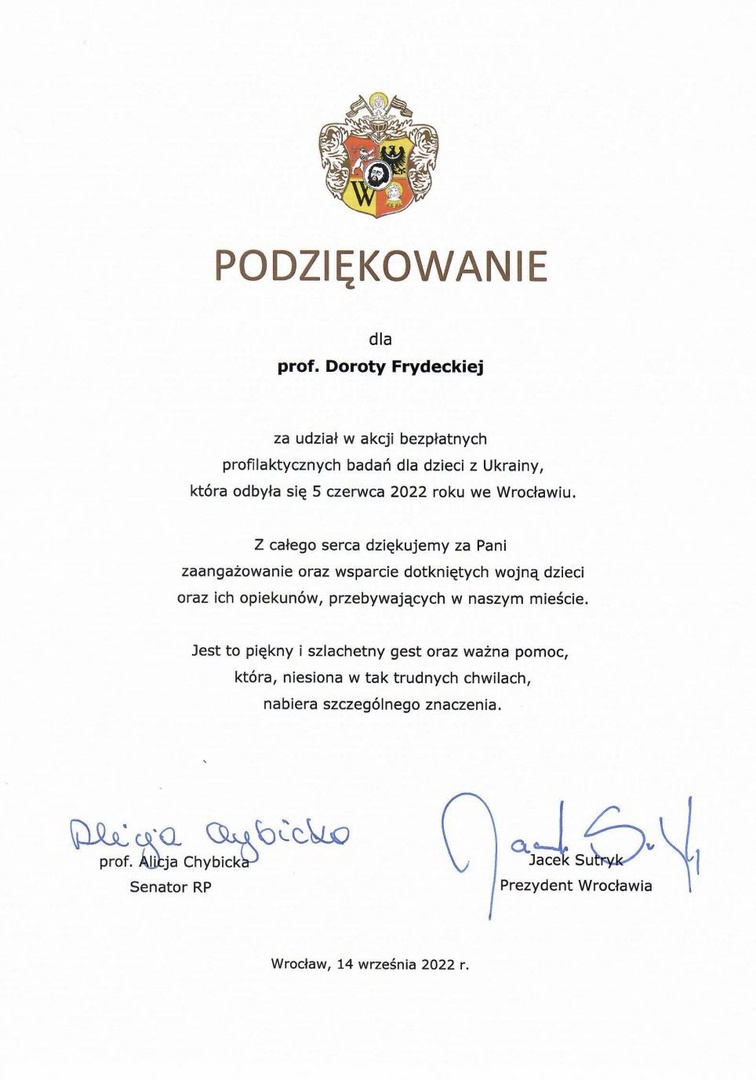 W
PODZIĘKOWANIE
dla
prof. Doroty Frydeckiej
za udział w akcji bezpłatnych
profilaktycznych badań dla dzieci z Ukrainy,
która odbyła się 5 czerwca 2022 roku we Wrocławiu.
Z całego serca dziękujemy za Pani
zaangażowanie oraz wsparcie dotkniętych wojną dzieci
oraz ich opiekunów, przebywających w naszym mieście.
Jest to piękny i szlachetny gest oraz ważna pomoc,
która, niesiona w tak trudnych chwilach,
nabiera szczególnego znaczenia.
Alicja Chybicka
prof. Alicja Chybicka
Senator RP
Jacek Sutryk
Prezydent Wrocławia
Wrocław, 14 września 2022 r.